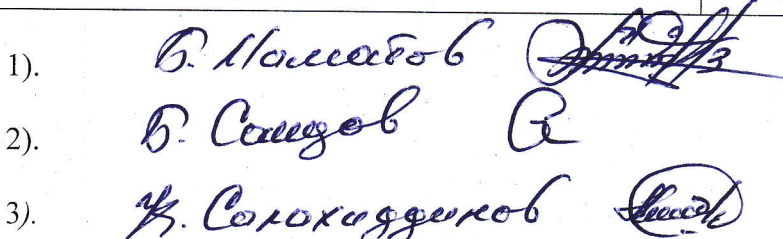 1). Б. Маматов
2). Б. Саидов
3). Қ. Салохиддинов